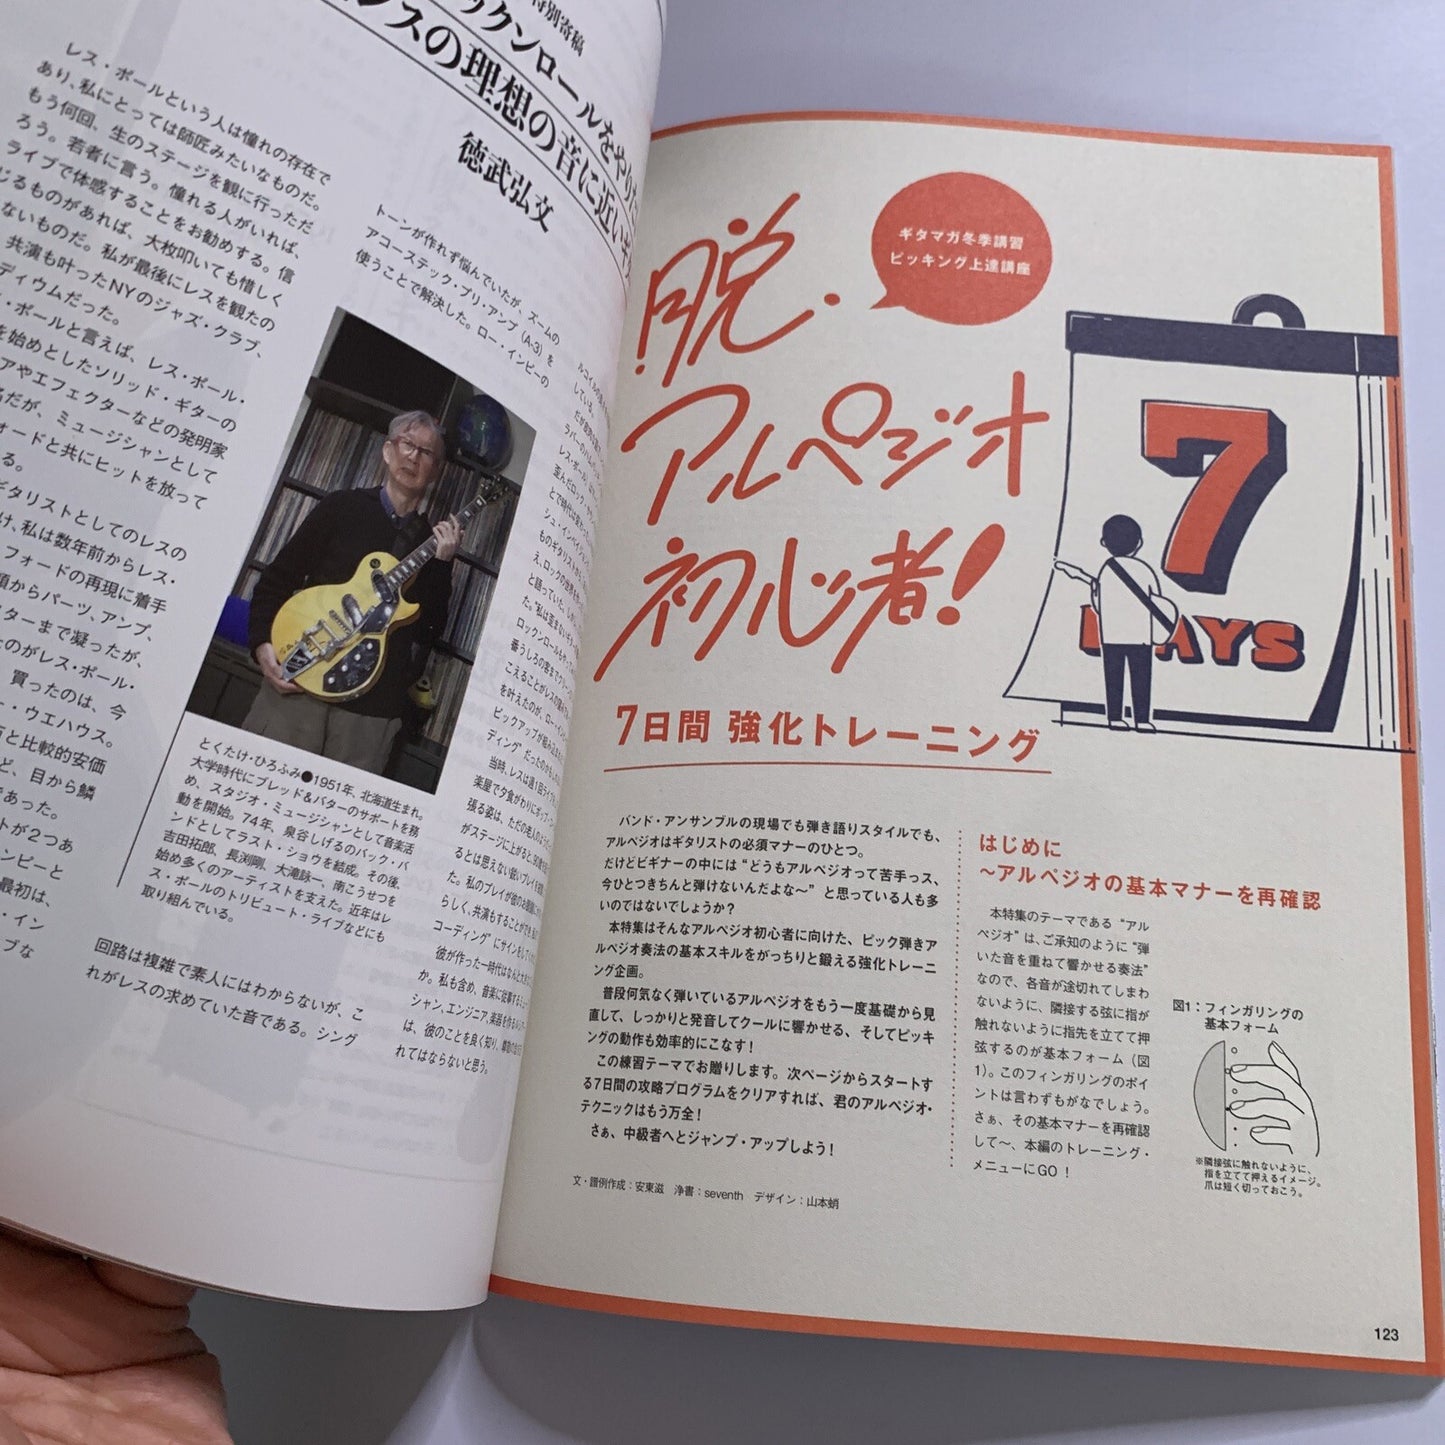 特別寄稿
ックンロールをやり
レスの理想の音に近い
徳武弘文
レス・ポールという人は憧れの存在で
あり、私にとっては師匠みたいなものだ。
もう何回、生のステージを観に行っただ
ろう。若者に言う。憧れる人がいれば、
ライブで体感することをお勧めする。信
じるものがあれば、大枚叩いても惜しく
ないものだ。私が最後にレスを観たの
共演も叶ったNYのジャズ・クラブ、
ディウムだった。
ス・ポールと言えば、レス・ポール・
を始めとしたソリッド・ギターの
アやエフェクターなどの発明家
名だが、ミュージシャンとして
ォードと共にヒットを放って
る。
ギタリストとしてのレスの
け、私は数年前からレス・
フォードの再現に着手
類からパーツ、アンプ、
クターまで凝ったが、
たのがレス・ポール・
買ったのは、今
ー・ウエハウス。
と比較的安価
ど、目から鱗
であった。
トが2つあ
ンピーと
最初は、
・イン
プな
トーンが作れず悩んでいたが、ズームの
アコーステック・プリ・アンプ（A-3）を
使うことで解決した。ロー・インピーの
とくたけ・ひろふみ●1951年、北海道生まれ。
大学時代にブレッド&バターのサポートを務
め、スタジオ・ミュージシャンとして音楽活
動を開始。74年、泉谷しげるのバック・バ
ンドとしてラスト・ショウを結成。その後、
吉田拓郎、長渕剛、大滝詠一、南こうせつを
始め多くのアーティストを支えた。近年はレ
ス・ポールのトリビュート・ライブなどにも
取り組んでいる。
回路は複雑で素人にはわからないが、こ
れがレスの求めていた音である。シング
ルコイルの
している。
レス・ポール、
と語っていた。
た。“私は歪まないギ
ロックンロールもやっ
番うしろの客までクリーン
こえることがレスの
を叶えたのが、ロー・イン
ピックアップが組み込ま
ディング”だったのかも
当時、レスは週1回ライブ
楽屋で夕食がわりにポップ
張る姿は、ただの老人のよう
がステージに上がると、
るとは思えない鋭いプレイを
た。私のプレイが彼のお眼鏡に
らしく、共演もすることができ、
コーディング”にサインをして
彼が作った一時代はなんと大き
か。私も含め、音楽に従事するミュー
シャン、エンジニア、楽器を作る
は、彼のことを良く知り、尊敬の念を
れてはならないと思う。
ギタマガ冬季講習
ピッキング上達講座
脱・
アルペジオ
初心者!
7
DAYS
7日間 強化トレーニング
バンド・アンサンブルの現場でも弾き語りスタイルでも、
アルペジオはギタリストの必須マナーのひとつ。
だけどビギナーの中には“どうもアルペジオって苦手っス、
今ひとつきちんと弾けないんだよな〜”と思っている人も多
いのではないでしょうか?
本特集はそんなアルペジオ初心者に向けた、ピック弾きア
ルペジオ奏法の基本スキルをがっちりと鍛える強化トレーニ
ング企画。
普段何気なく弾いているアルペジオをもう一度基礎から見
直して、しっかりと発音してクールに響かせる、そしてピッキ
ングの動作も効率的にこなす!
この練習テーマでお贈りします。次ページからスタートす
る7日間の攻略プログラムをクリアすれば、君のアルペジオ・
テクニックはもう万全!
さぁ、中級者へとジャンプ・アップしよう!
文・譜例作成：安東滋　浄書：seventh　デザイン：山本蛸
はじめに
〜アルペジオの基本マナーを再確認
本特集のテーマである“アル
ペジオ”は、ご承知のように“弾
いた音を重ねて響かせる奏法”
なので、各音が途切れてしまわ
ないように、隣接する弦に指が
触れないように指先を立てて押
弦するのが基本フォーム（図
1）。このフィンガリングのポイ
ントは言わずもがなでしょう。
さぁ、その基本マナーを再確認
して〜、本編のトレーニング・
メニューにGO！
図1：フィンガリングの
基本フォーム
※隣接弦に触れないように、
指を立てて押えるイメージ。
爪は短く切っておこう。
123